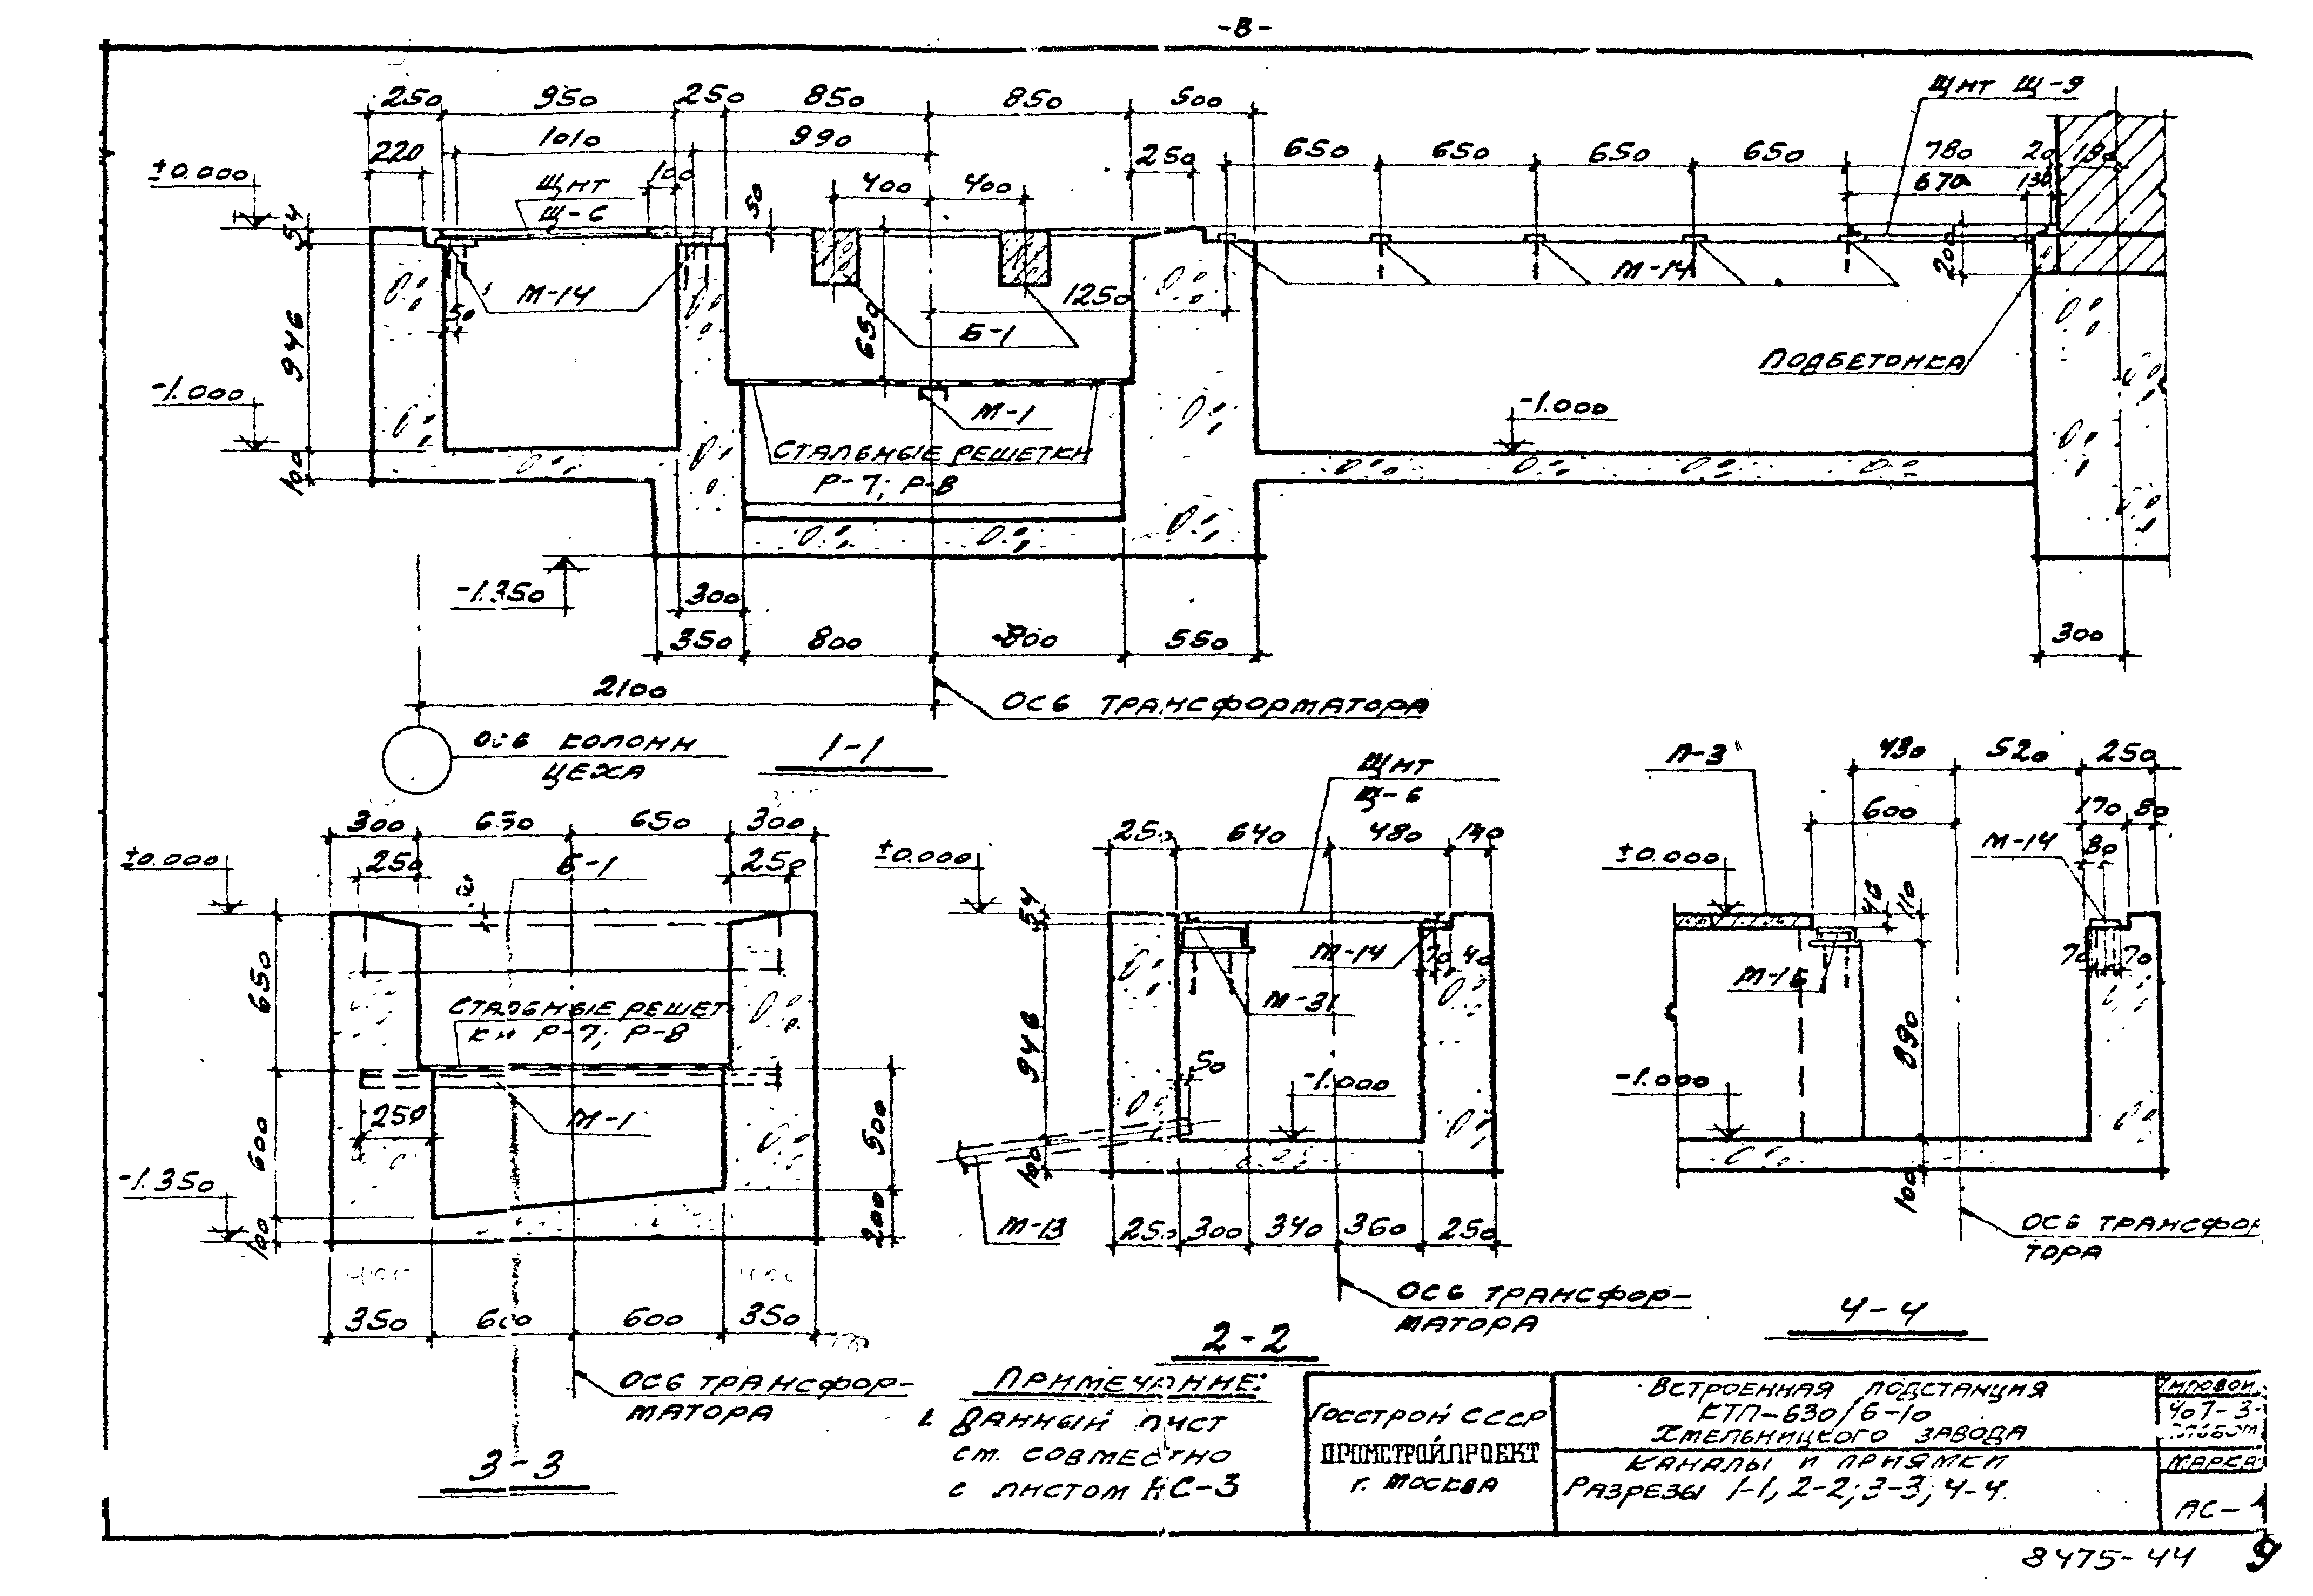 -8-
250 950 250 850 850 500
Щит Щ-9
220 1010 990 250 650 650 650 650 780 20 180
±0.000 100 400 400 670 130
Щит
Щ-6
54 50
М-14 1250 М-14 200
50 650 Б-1
946 ПОДБЕТОНКА
-1.000 М-1 -1.000
СТАЛЬНЫЕ РЕШЕТКИ
Р-7; Р-8
100
-1.350 300
350 800 800 550 300
2100 ОСЬ ТРАНСФОРМАТОРА
ОСЬ КОЛОНН
ЦЕХА
1-1
300 650 650 300
±0.000 250 Б-1 250
650
СТАЛЬНЫЕ РЕШЕТ
КИ Р-7; Р-8
250 М-1
600 500
-1.350
100 200
350 600 600 350
ОСЬ ТРАНСФОР-
МАТОРА
3-3
Щит
Щ-6
250 640 480 140
±0.000
54
М-14 70 40
М-31
946 50 -1.000
100
М-13 250 300 340 360 250
ОСЬ ТРАНСФОР-
МАТОРА
2-2
П-3 430 520 250
600 170 80
±0.000 М-14 80
46 110
М-15 70 70
890
-1.000
100
ОСЬ ТРАНСФОР
ТОРА
4-4
ПРИМЕЧАНИЕ:
1. ДАННЫЙ ЛИСТ
СМ. СОВМЕСТНО
С ЛИСТОМ КС-3
ГОССТРОЙ СССР
ПРОМСТРОЙПРОЕКТ
г. МОСКВА
ВСТРОЕННАЯ ПОДСТАНЦИЯ
КТП-630/6-10
ХМЕЛЬНИЦКОГО ЗАВОДА
КАНАЛЫ И ПРИЯМКИ
РАЗРЕЗЫ 1-1, 2-2; 3-3; 4-4.
407-3-
МАРКА
АС-
8475-44 9